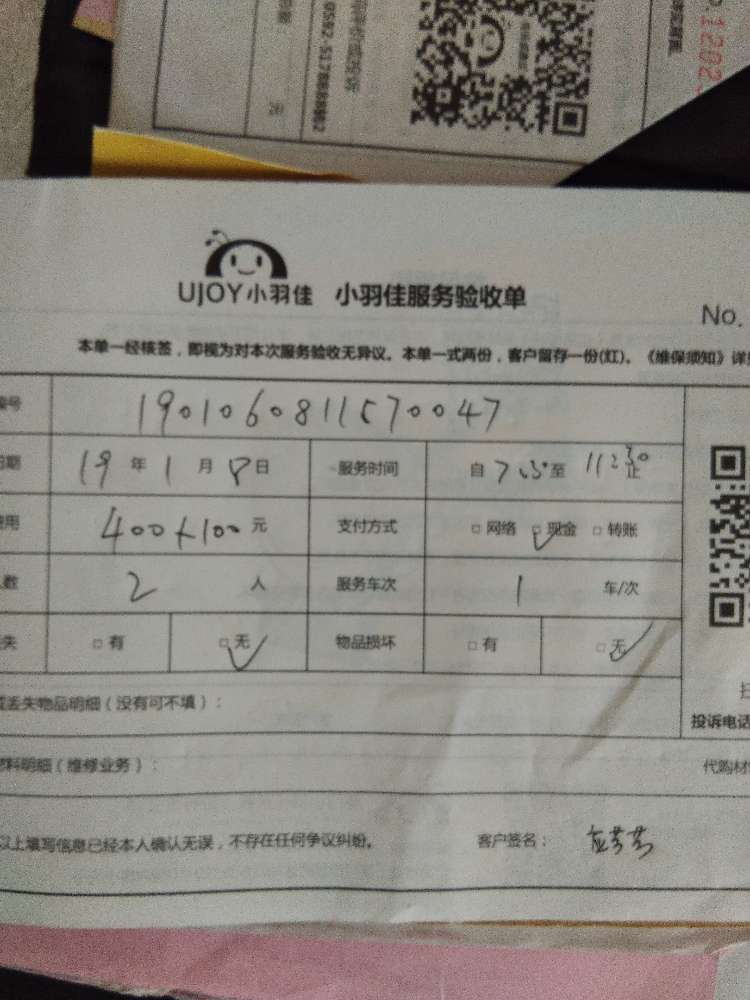 0592-5178888转2
1202
UJOY小羽佳 小羽佳服务验收单
No.
本单一经核签，即视为对本次服务验收无异议。本单一式两份，客户留存一份(红)。《维保须知》详
编号 190106081157 0047
日期 19 年 1 月 8 日 服务时间 自 7:30 至 11:30 止
费用 400+100 元 支付方式 □网络 □现金 □转账
人数 2 人 服务车次 1 车/次
丢失 □有 □无 物品损坏 □有 □无
或丢失物品明细（没有可不填）：
投诉电话
材料明细（维修业务）： 代购材
以上填写信息已经本人确认无误，不存在任何争议纠纷。 客户签名：